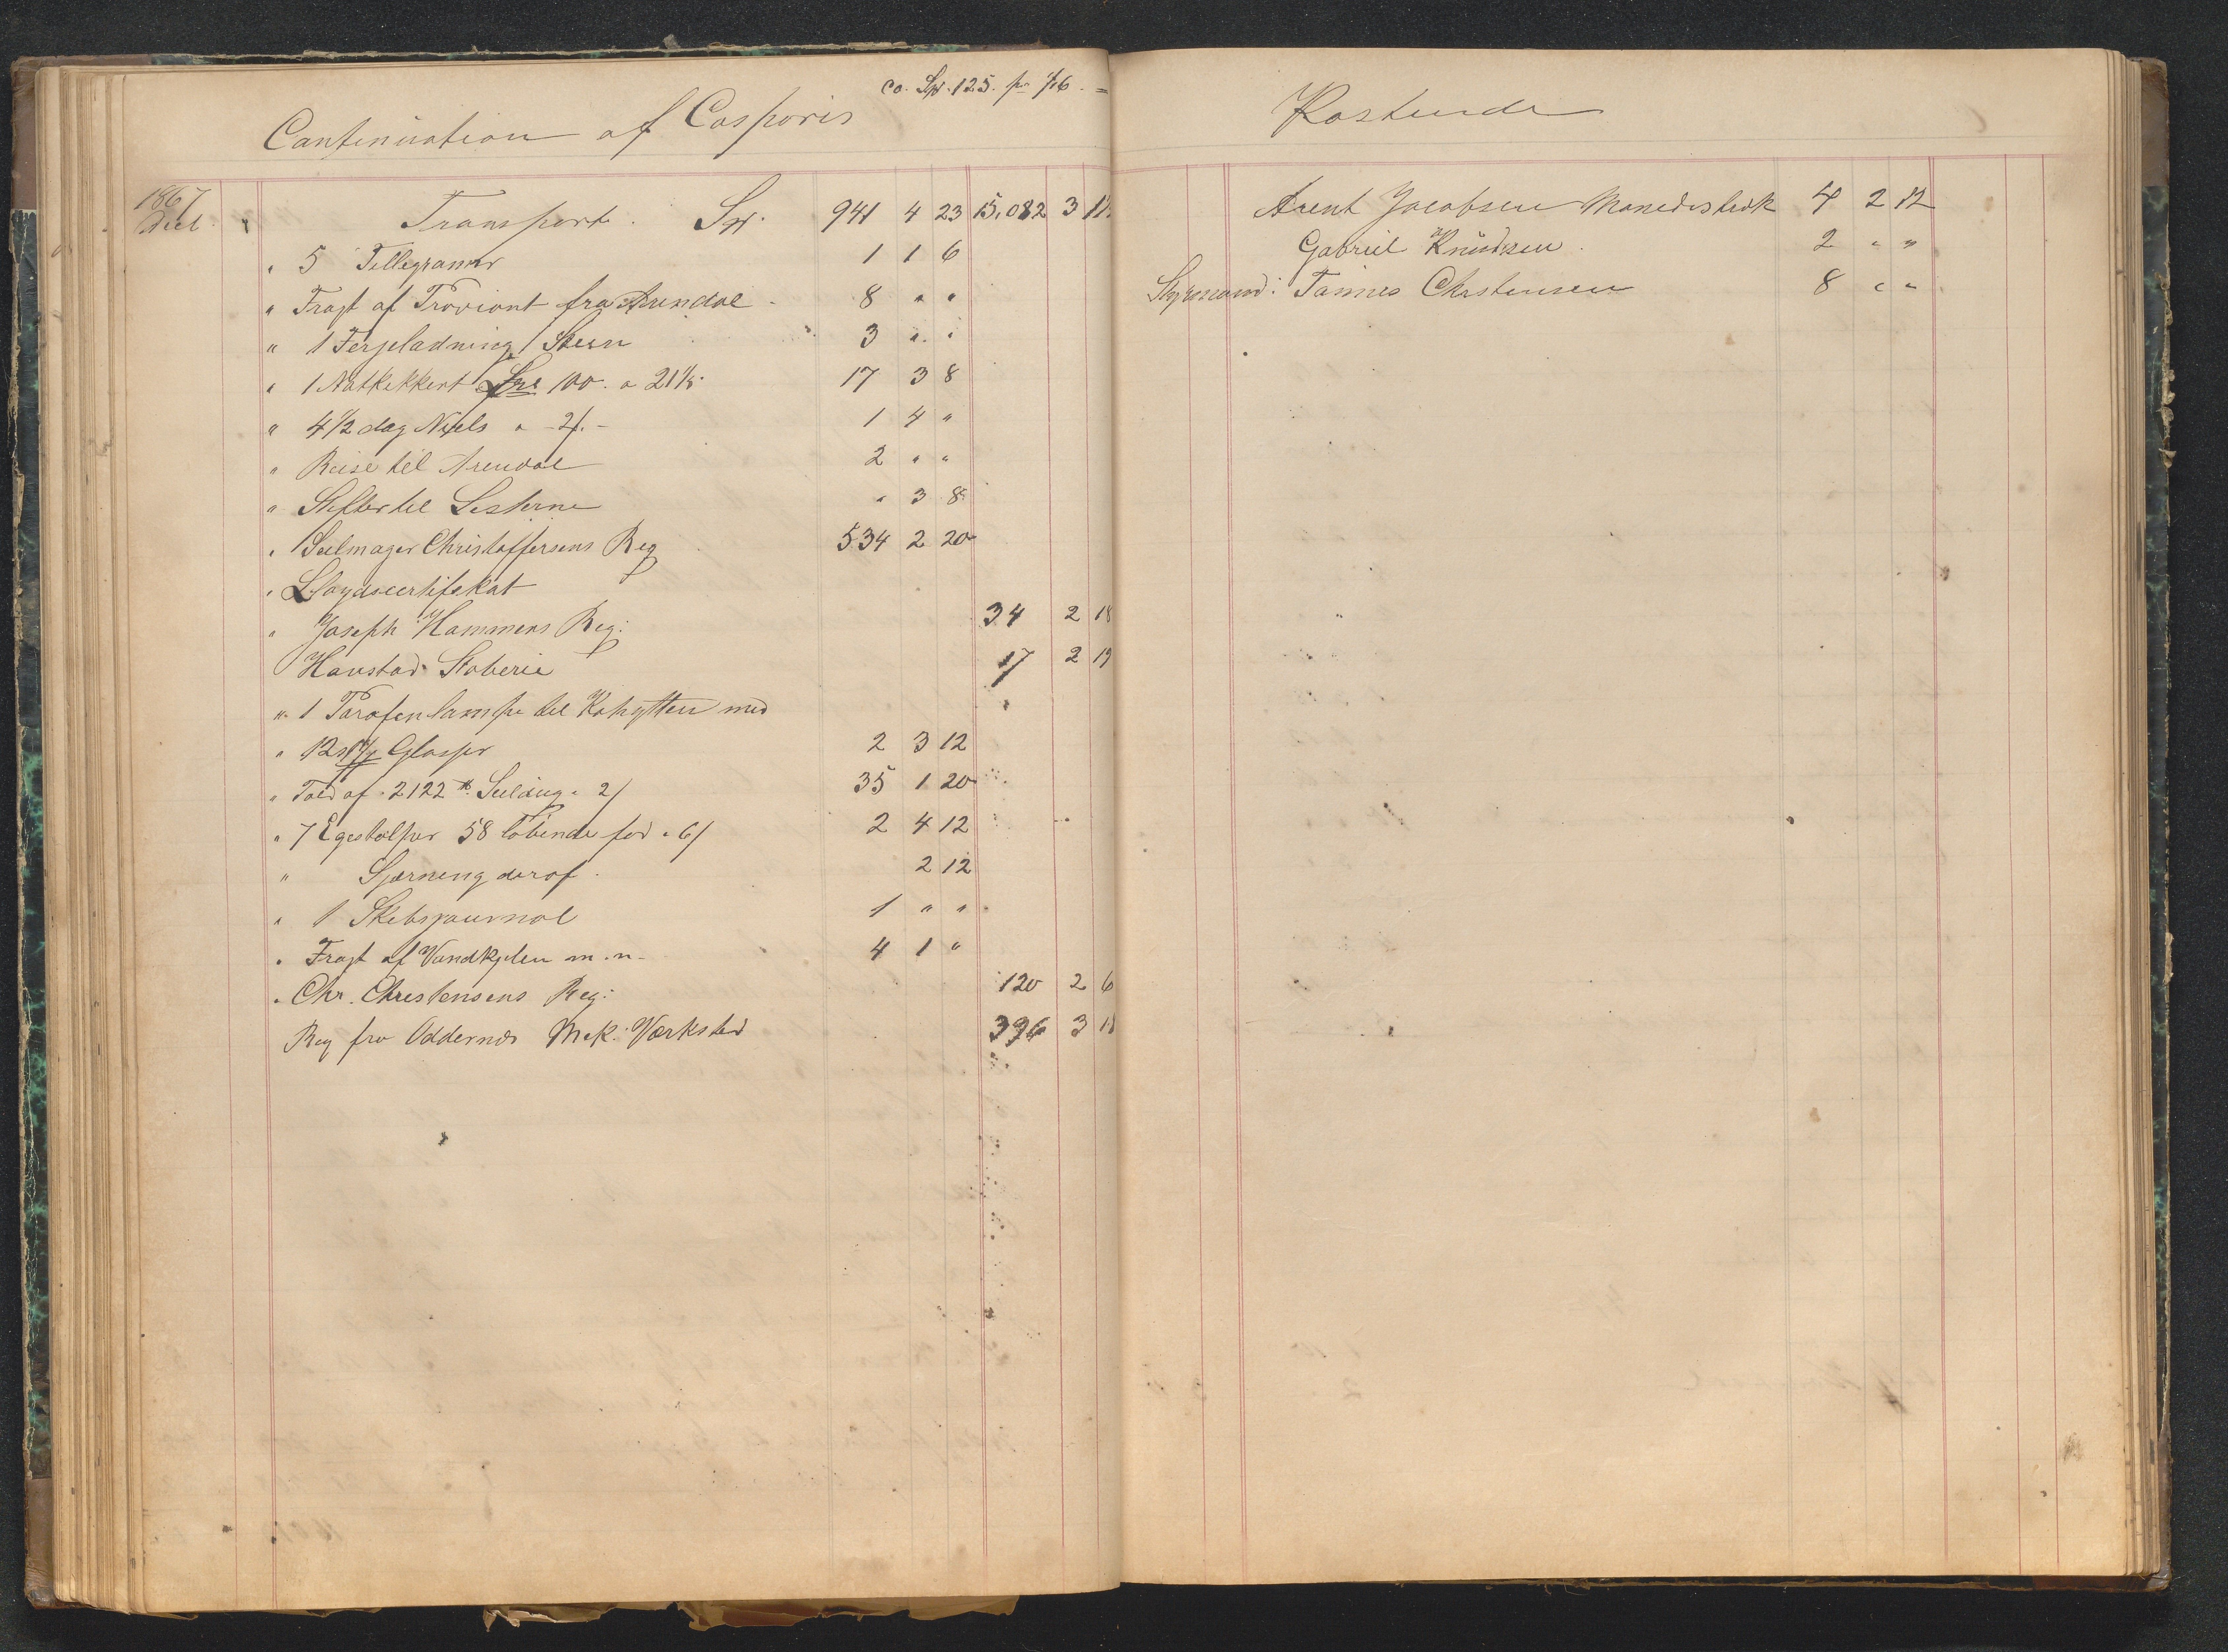 co. Sp. 125. pr 7/6. =
Continuation af Casparis
1867
Transport. Sp. 941 4 23 15,082 3
" 5 Tellegramer 1 1 6
" Fragt af Proviant fra Arendal - 8 " "
" 1 Ferjeladning Steen 3 " "
" 1 Natkekkert 100. a 21 17 3 8
" 4 1/2 dag Niels a - 2/. - 1 4 "
" Reise til Arendal 2 " "
" Skifter til Lesterne " 3 8
" Seilmager Christoffersens Reg 534 2 20
" Lloydscertifekat
" Joseph Hammens Reg: 34 2 18
Havstad Stoberie 17 2 19
" 1 Parafenlampe til Kahytten med
" 12 Glasser 2 3 12
" Told af 2122 Seildug a 2/ 35 1 20
" 7 Egestolper 58 löbende fod a 6/ 2 4 12
" Sjærneng deraf. 2 12
" 1 Skibsjournal 1 " "
" Fragt af Vandkjelen m. n- 4 1 "
" Chr. Christensens Reg: 120 2 6
Reg fra Oddernes Mek: Værksted 396 3
Kostende
Arent Jacobsen Manedistræk 4 2 12
Gabriel Knudsen. 2 " "
Styrmand: Tønnes Chrstensen 8 " "